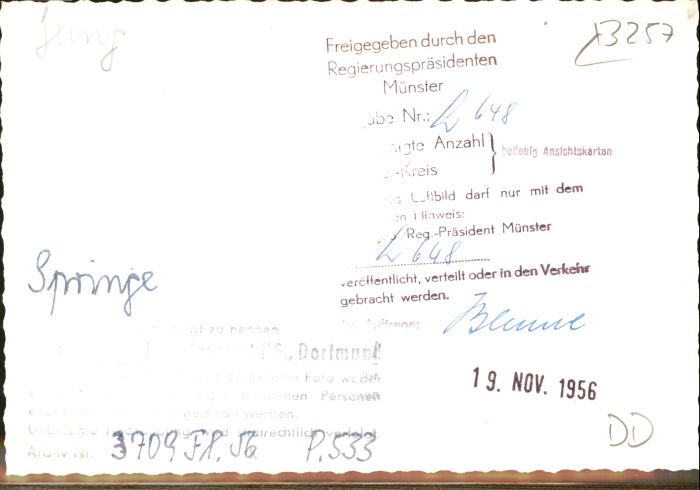 Jung
B257
Freigegeben durch den
Regierungspräsidenten
Münster
abe Nr.: L 648
igte Anzahl } beliebig Ansichtskarten
-Kreis
s Luftbild darf nur mit dem
en Hinweis:
Reg.-Präsident Münster
L 648
veröffentlicht, verteilt oder in den Verkehr
gebracht werden.
Im Auftrage:
Springe
gt zu nennen
G., Dortmund
Foto weder
Personen
werden.
strafrechtlich verfolgt.
Archiv Nr. 3709 Fl. 56 P.533
19. NOV. 1956
DD